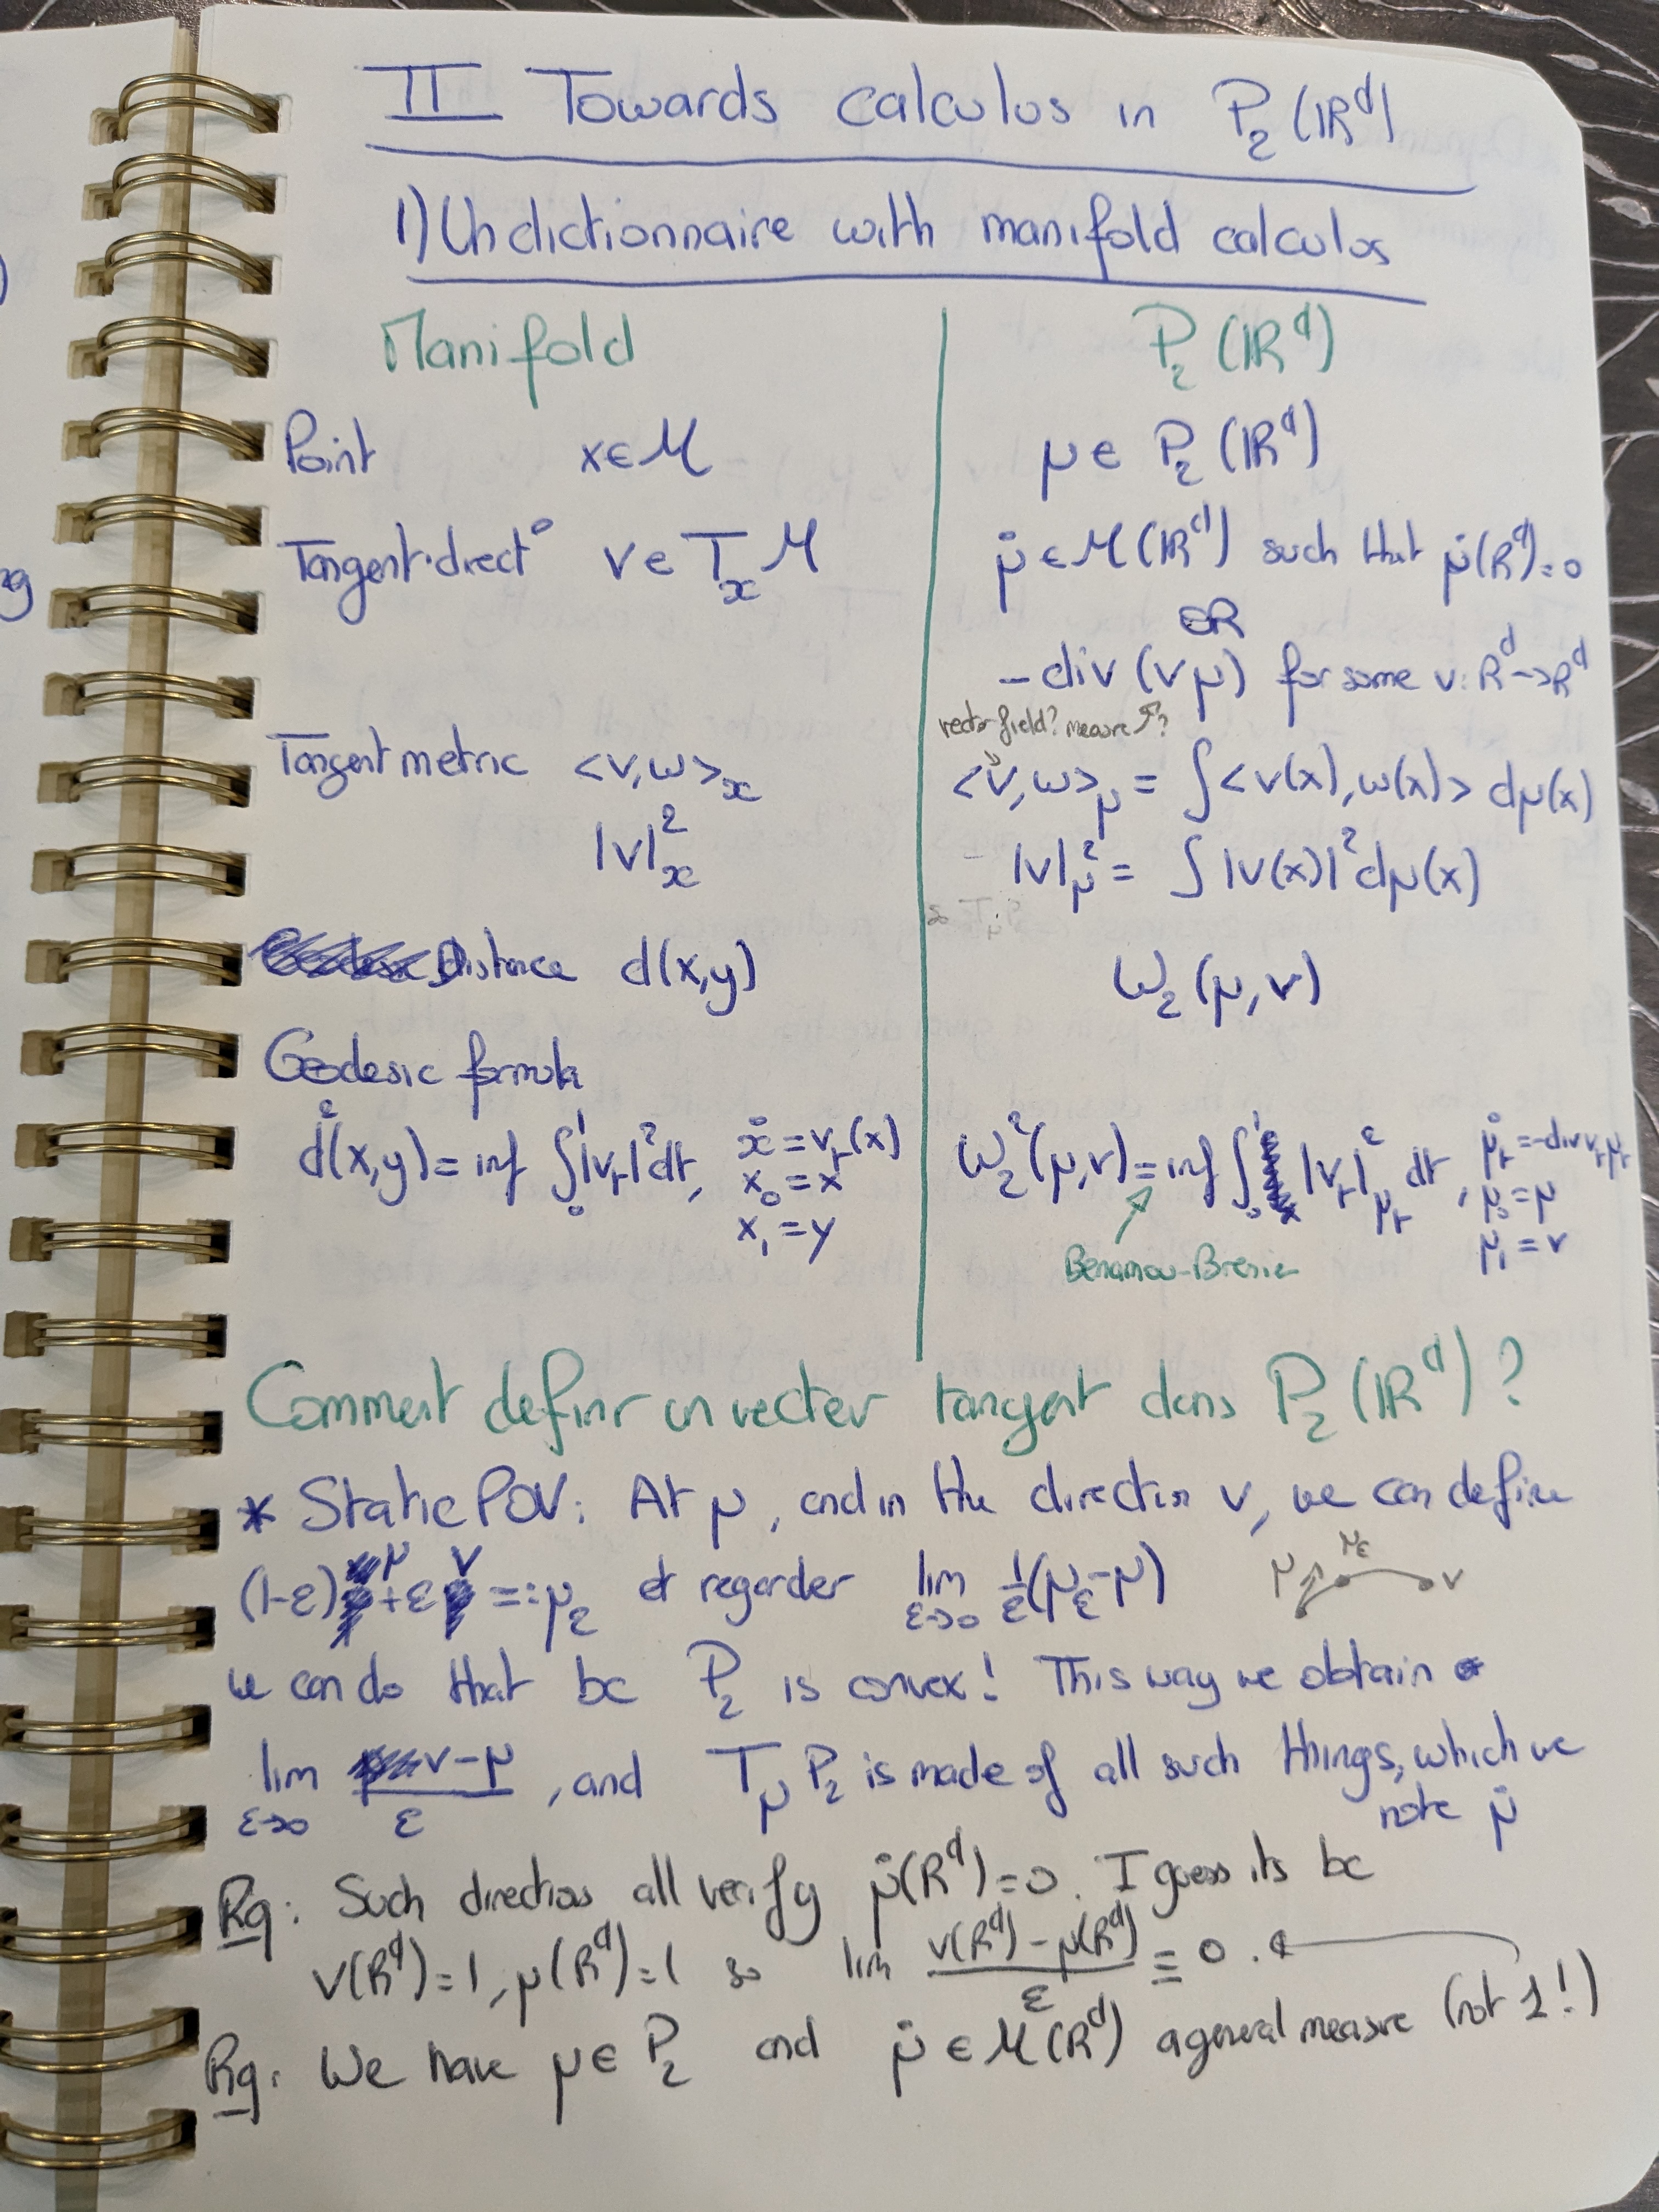 II Towards calculus in P₂(ℝᵈ)
1) Un dictionnaire with manifold calculus
Manifold P₂(ℝᵈ)
Point x ∈ M μ ∈ P₂(ℝᵈ)
Tangent direct° v ∈ TₓM μ̇ ∈ M(ℝᵈ) such that μ̇(ℝᵈ)=0
OR
-div(vμ) for some v: ℝᵈ→ℝᵈ
vector field? measure ?
Tangent metric <v,ω>ₓ <v,ω>_μ = ∫<v(x),ω(x)> dμ(x)
|v|²ₓ |v|²_μ = ∫|v(x)|²dμ(x)
Distance d(x,y) W₂(μ,ν)
Geodesic formula
d²(x,y) = inf ∫₀¹|vₜ|²dt, ẋ = vₜ(x) W₂²(μ,ν) = inf ∫₀¹ |vₜ|²_μₜ dt, μ̇ₜ = -div vₜμₜ
x₀ = x μ₀ = μ
x₁ = y μ₁ = ν
Benamou-Brenier
Comment definir un vecteur tangent dans P₂(ℝᵈ)?
* Static POV: At μ, and in the direction ν, we can define
(1-ε)μ + εν =: μ_ε et regarder lim_{ε→0} 1/ε(μ_ε-μ)
μ μ_ε ν
we can do that bc P₂ is convex! This way we obtain
lim_{ε→0} (ν-μ)/ε, and T_μP₂ is made of all such things, which we
note μ̇
Rq: Such directions all verify μ̇(ℝᵈ)=0. I guess its bc
ν(ℝᵈ)=1, μ(ℝᵈ)=1 so lim (ν(ℝᵈ)-μ(ℝᵈ))/ε = 0.
Rq: We have μ ∈ P₂ and μ̇ ∈ M(ℝᵈ) a general measure (not 1!)